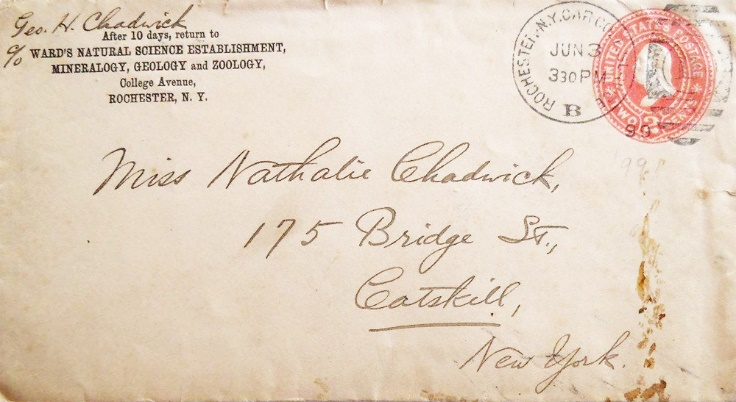 Geo. H. Chadwick
After 10 days, return to
c/o WARD'S NATURAL SCIENCE ESTABLISHMENT,
MINERALOGY, GEOLOGY and ZOOLOGY,
College Avenue,
ROCHESTER, N. Y.
ROCHESTER, N.Y.
JUN 3
330 PM
B
99
UNITED STATES POSTAGE
TWO CENTS
Miss Nathalie Chadwick,
175 Bridge St.,
Catskill,
New York.